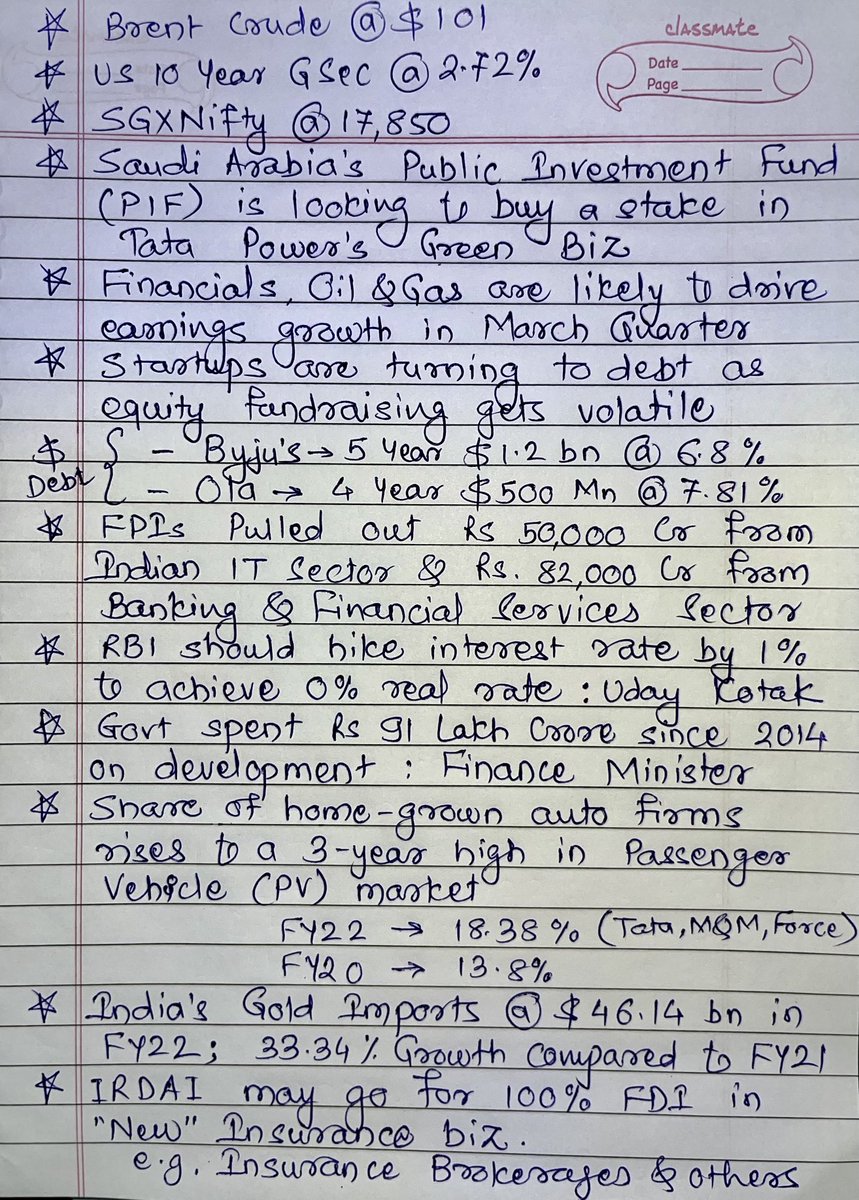 ☆ Brent Crude @ $101
classmate
Date
Page
☆ US 10 Year GSec @ 2.72%
☆ SGXNifty @ 17,850
☆ Saudi Arabia's Public Investment Fund
(PIF) is looking to buy a stake in
Tata Power's Green Biz
☆ Financials, Oil & Gas are likely to drive
earnings growth in March Quarter
☆ Startups are turning to debt as
equity fundraising gets volatile
$ Debt { – Byju's → 5 Year $1.2 bn @ 6.8%
– Ola → 4 Year $500 Mn @ 7.81%
☆ FPIs Pulled out Rs 50,000 Cr from
Indian IT Sector & Rs. 82,000 Cr from
Banking & Financial Services Sector
☆ RBI should hike interest rate by 1%
to achieve 0% real rate : Uday Kotak
☆ Govt spent Rs 91 Lakh Crore since 2014
on development : Finance Minister
☆ Share of home-grown auto firms
rises to a 3-year high in Passenger
Vehicle (PV) market
FY22 → 18.38% (Tata, M&M, Force)
FY20 → 13.8%
☆ India's Gold Imports @ $46.14 bn in
FY22; 33.34% Growth compared to FY21
☆ IRDAI may go for 100% FDI in
"New" Insurance biz.
e.g. Insurance Brokerages & others